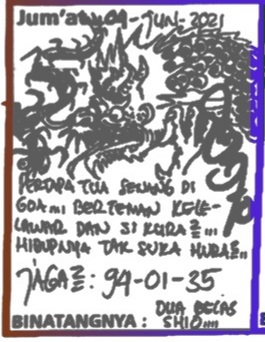 Jum'at, 04-JUN-2021
PERTAPA TUA SENANG DI
GOA... BERTEMAN KELE-
LAWAR DAN SI KURA2...
HIDUPNYA TAK SUKA HURA2..
JAGA2: 94-01-35
DUA BELAS
BINATANGNYA : SHIO....